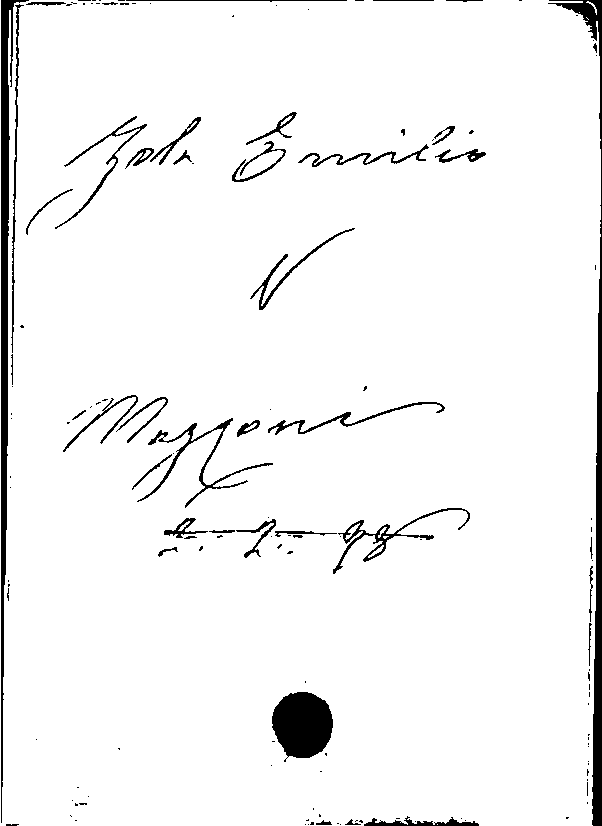 Zola Emilio
V
Mazzoni
2. 2. 98